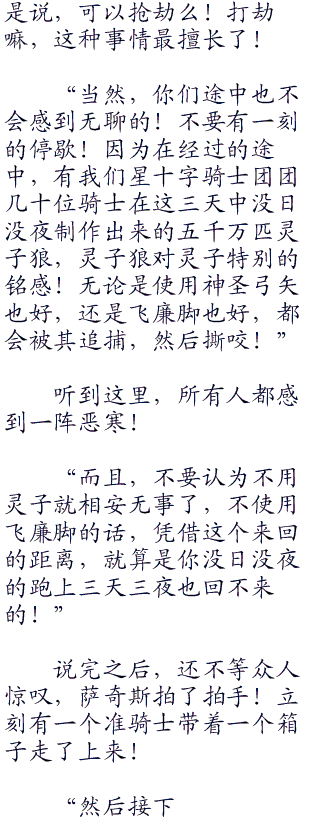 是说，可以抢劫么！打劫
嘛，这种事情最擅长了！
“当然，你们途中也不
会感到无聊的！不要有一刻
的停歇！因为在经过的途
中，有我们星十字骑士团团
几十位骑士在这三天中没日
没夜制作出来的五千万匹灵
子狼，灵子狼对灵子特别的
铭感！无论是使用神圣弓矢
也好，还是飞廉脚也好，都
会被其追捕，然后撕咬！”
听到这里，所有人都感
到一阵恶寒！
“而且，不要认为不用
灵子就相安无事了，不使用
飞廉脚的话，凭借这个来回
的距离，就算是你没日没夜
的跑上三天三夜也回不来
的！”
说完之后，还不等众人
惊叹，萨奇斯拍了拍手！立
刻有一个准骑士带着一个箱
子走了上来！
“然后接下